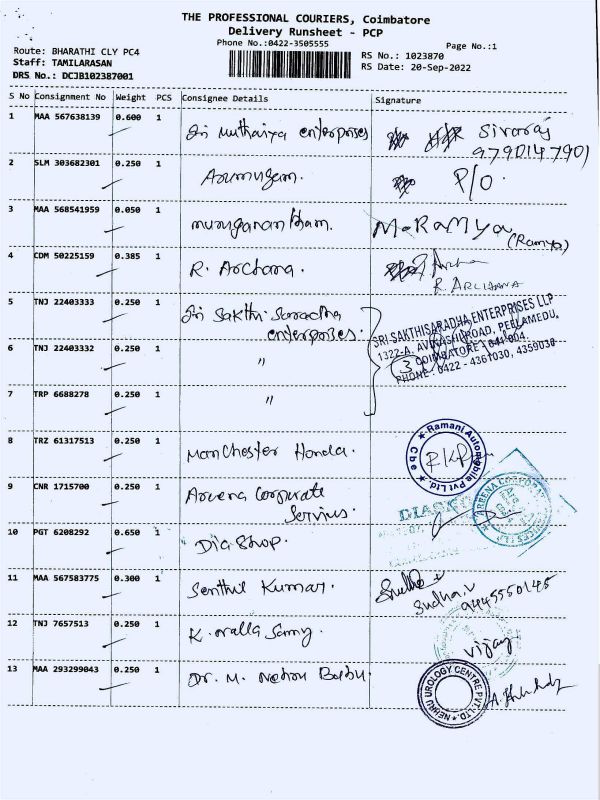 THE PROFESSIONAL COURIERS, Coimbatore
Delivery Runsheet - PCP
Phone No.:0422-3505555
Page No.:1
Route: BHARATHI CLY PC4
Staff: TAMILARASAN
DRS No.: DCJB102387001
RS No.: 1023870
RS Date: 20-Sep-2022
S No Consignment No Weight PCS Consignee Details Signature
1 MAA 567638139 0.600 1 Sri Muthaiya enterprises Sivaraj
9790147901
2 SLM 303682301 0.250 1 Arumugam. P/O.
3 MAA 568541959 0.050 1 muruganantham. M.RaMya
(Ramya)
4 CDM 50225159 0.385 1 R. Archana. Archana
R. ARCHANA
5 TNJ 22403333 0.250 1 Sri Sakthi Saradha
enterprises.
SRI SAKTHISARADHA ENTERPRISES LLP
1322-A, AVINASHI ROAD, PEELAMEDU,
COIMBATORE - 641 004.
PHONE : 0422 - 4361030, 4359030
3
6 TNJ 22403332 0.250 1 "
7 TRP 6688278 0.250 1 "
8 TRZ 61317513 0.250 1 Manchester Honda.
Ramani Automobile Pvt Ltd.
Cbe
9 CNR 1715700 0.250 1 Arvena Corporate
Servius.
10 PGT 6208292 0.650 1 Dia Shop.
11 MAA 567583775 0.300 1 Senthil Kumar. Sudha.v
9445550145
12 TNJ 7657513 0.250 1 K. nalla Samy. vijay
13 MAA 293299043 0.250 1 Dr. M. Nehru Babu.
NEHRU UROLOGY CENTRE PVT. LTD.